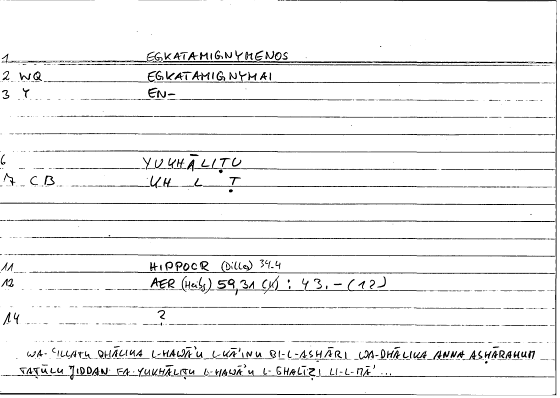 1 EGKATAMIGNYMENOS
2 WQ EGKATAMIGNYMAI
3 Y EN-
6 YUKHĀLIṬU
7 CB KH L Ṭ
11 HIPPOCR (Diller) 34.4
12 AER 59,31 (K) : 43.-(12)
14 ?
WA-ʿILLATU DHĀLIKA L-HAWĀʾU L-KĀʾINU BI-L-ASḤĀRI WA-DHĀLIKA ANNA ASḤĀRAHUM
TAṬŪLU JIDDAN FA-YUKHĀLIṬU L-HAWĀʾU L-GHALĪẒI LI-L-MĀʾ...